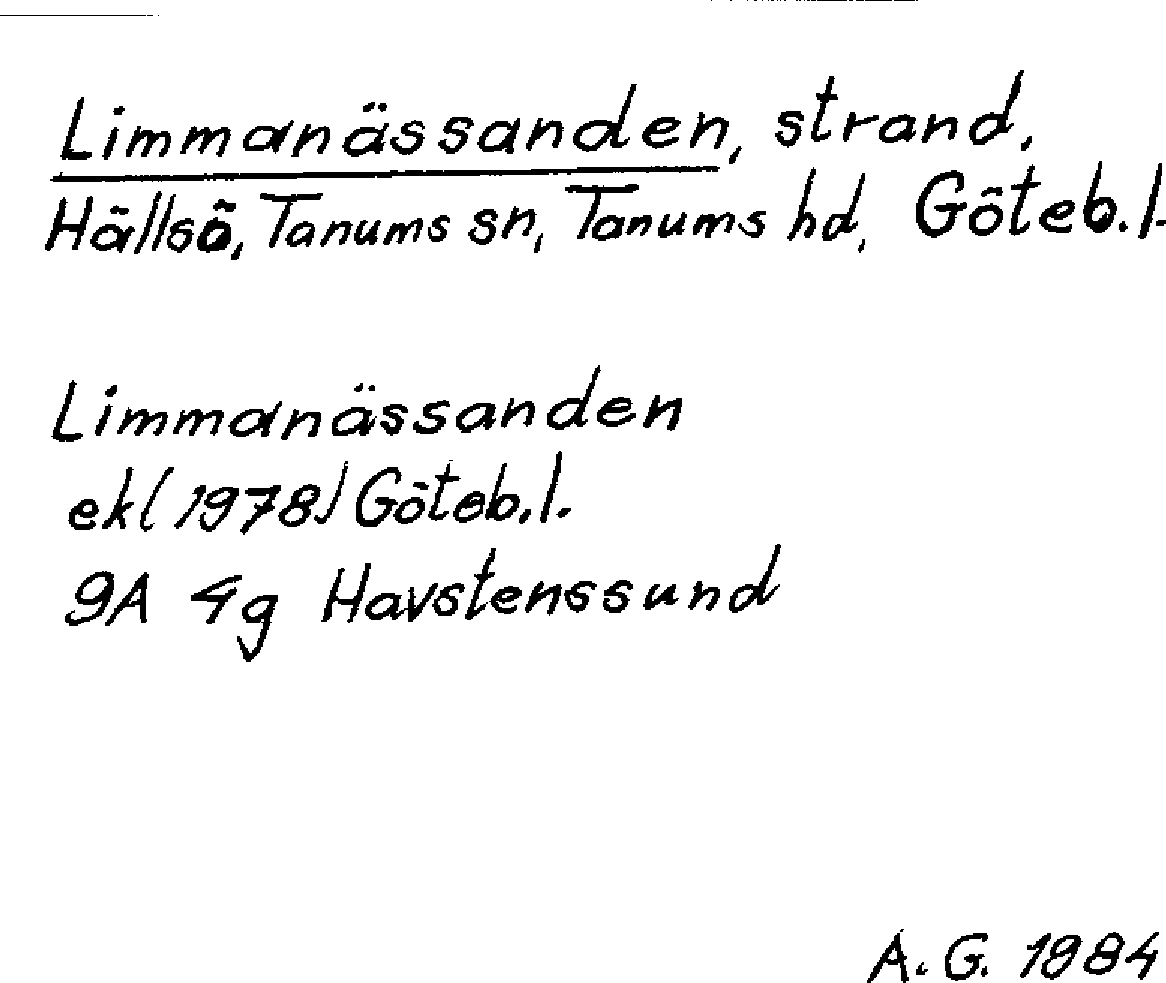 Limmanässanden, strand,
Hällsö, Tanums sn, Tanums hd, Göteb.l.
Limmanässanden
ek (1978) Göteb.l.
9A 4g Havstenssund
A.G. 1984